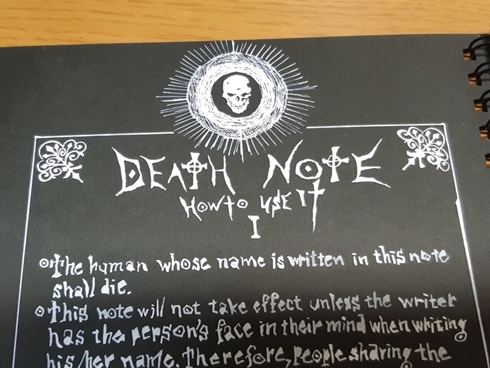 DEATH NOTE
HOW TO USE IT
I
The human whose name is written in this note
shall die.
This note will not take effect unless the writer
has the person's face in their mind when writing
his/her name. Therefore, people sharing the